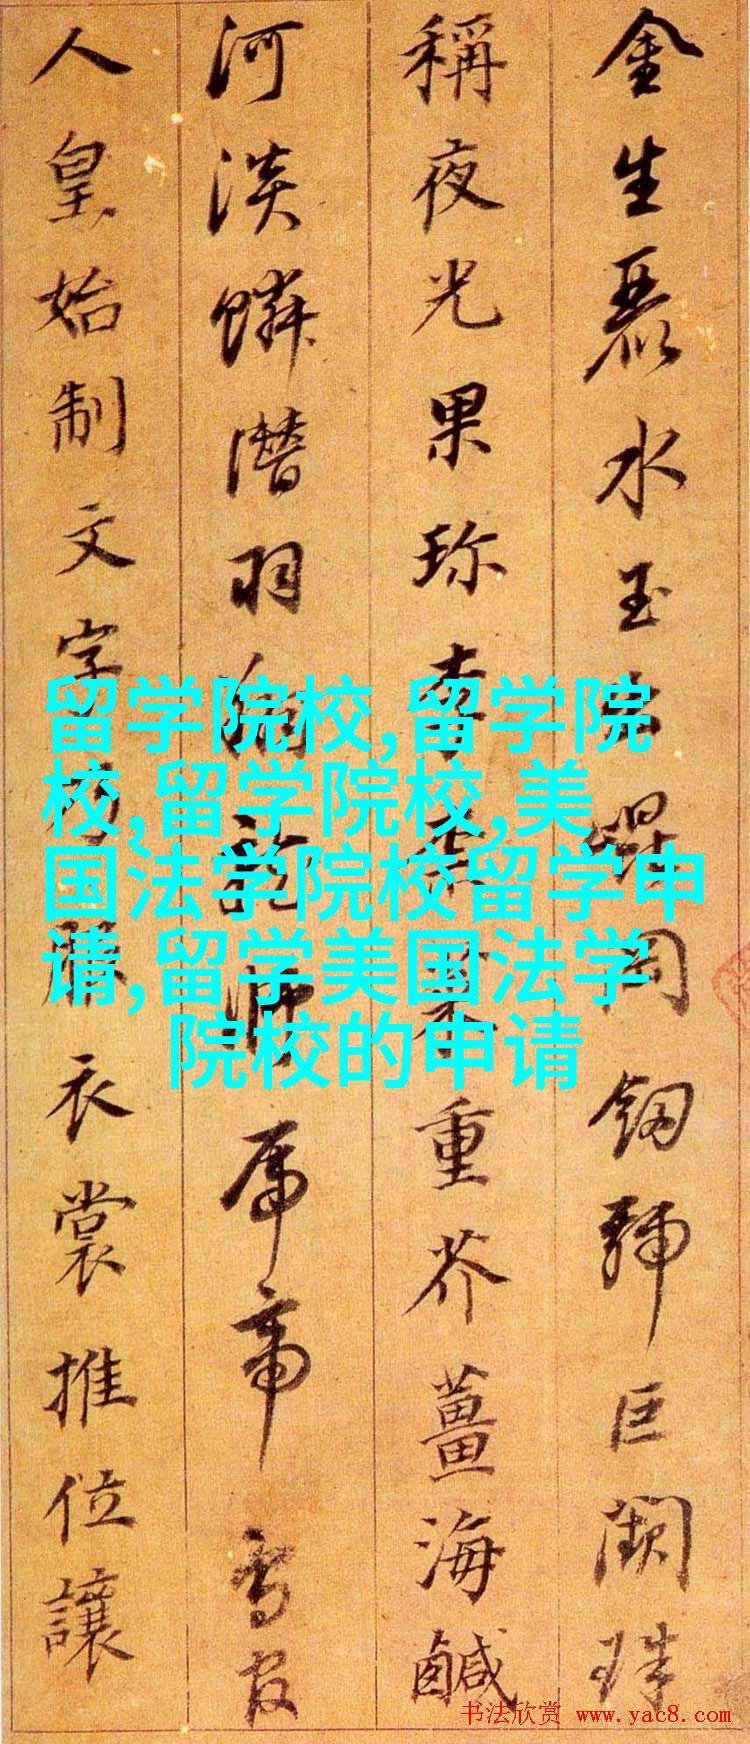 金生麗水玉出崐岡劒號巨闕珠
稱夜光果珍李柰菜重芥薑海鹹
河淡鱗潛羽翔龍師帝鳥官
人皇始制文字乃服衣裳推位讓
留学院校,留学院
校,留学院校,美
国法学院校留学申
请,留学美国法学
院校的申请
书法欣赏 www.yac8.com